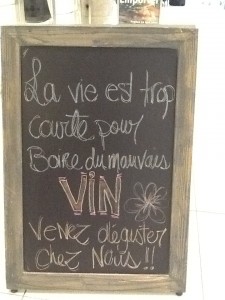 La vie est trop
courte pour
Boire du mauvais
VIN
venez déguster
chez Nous !!